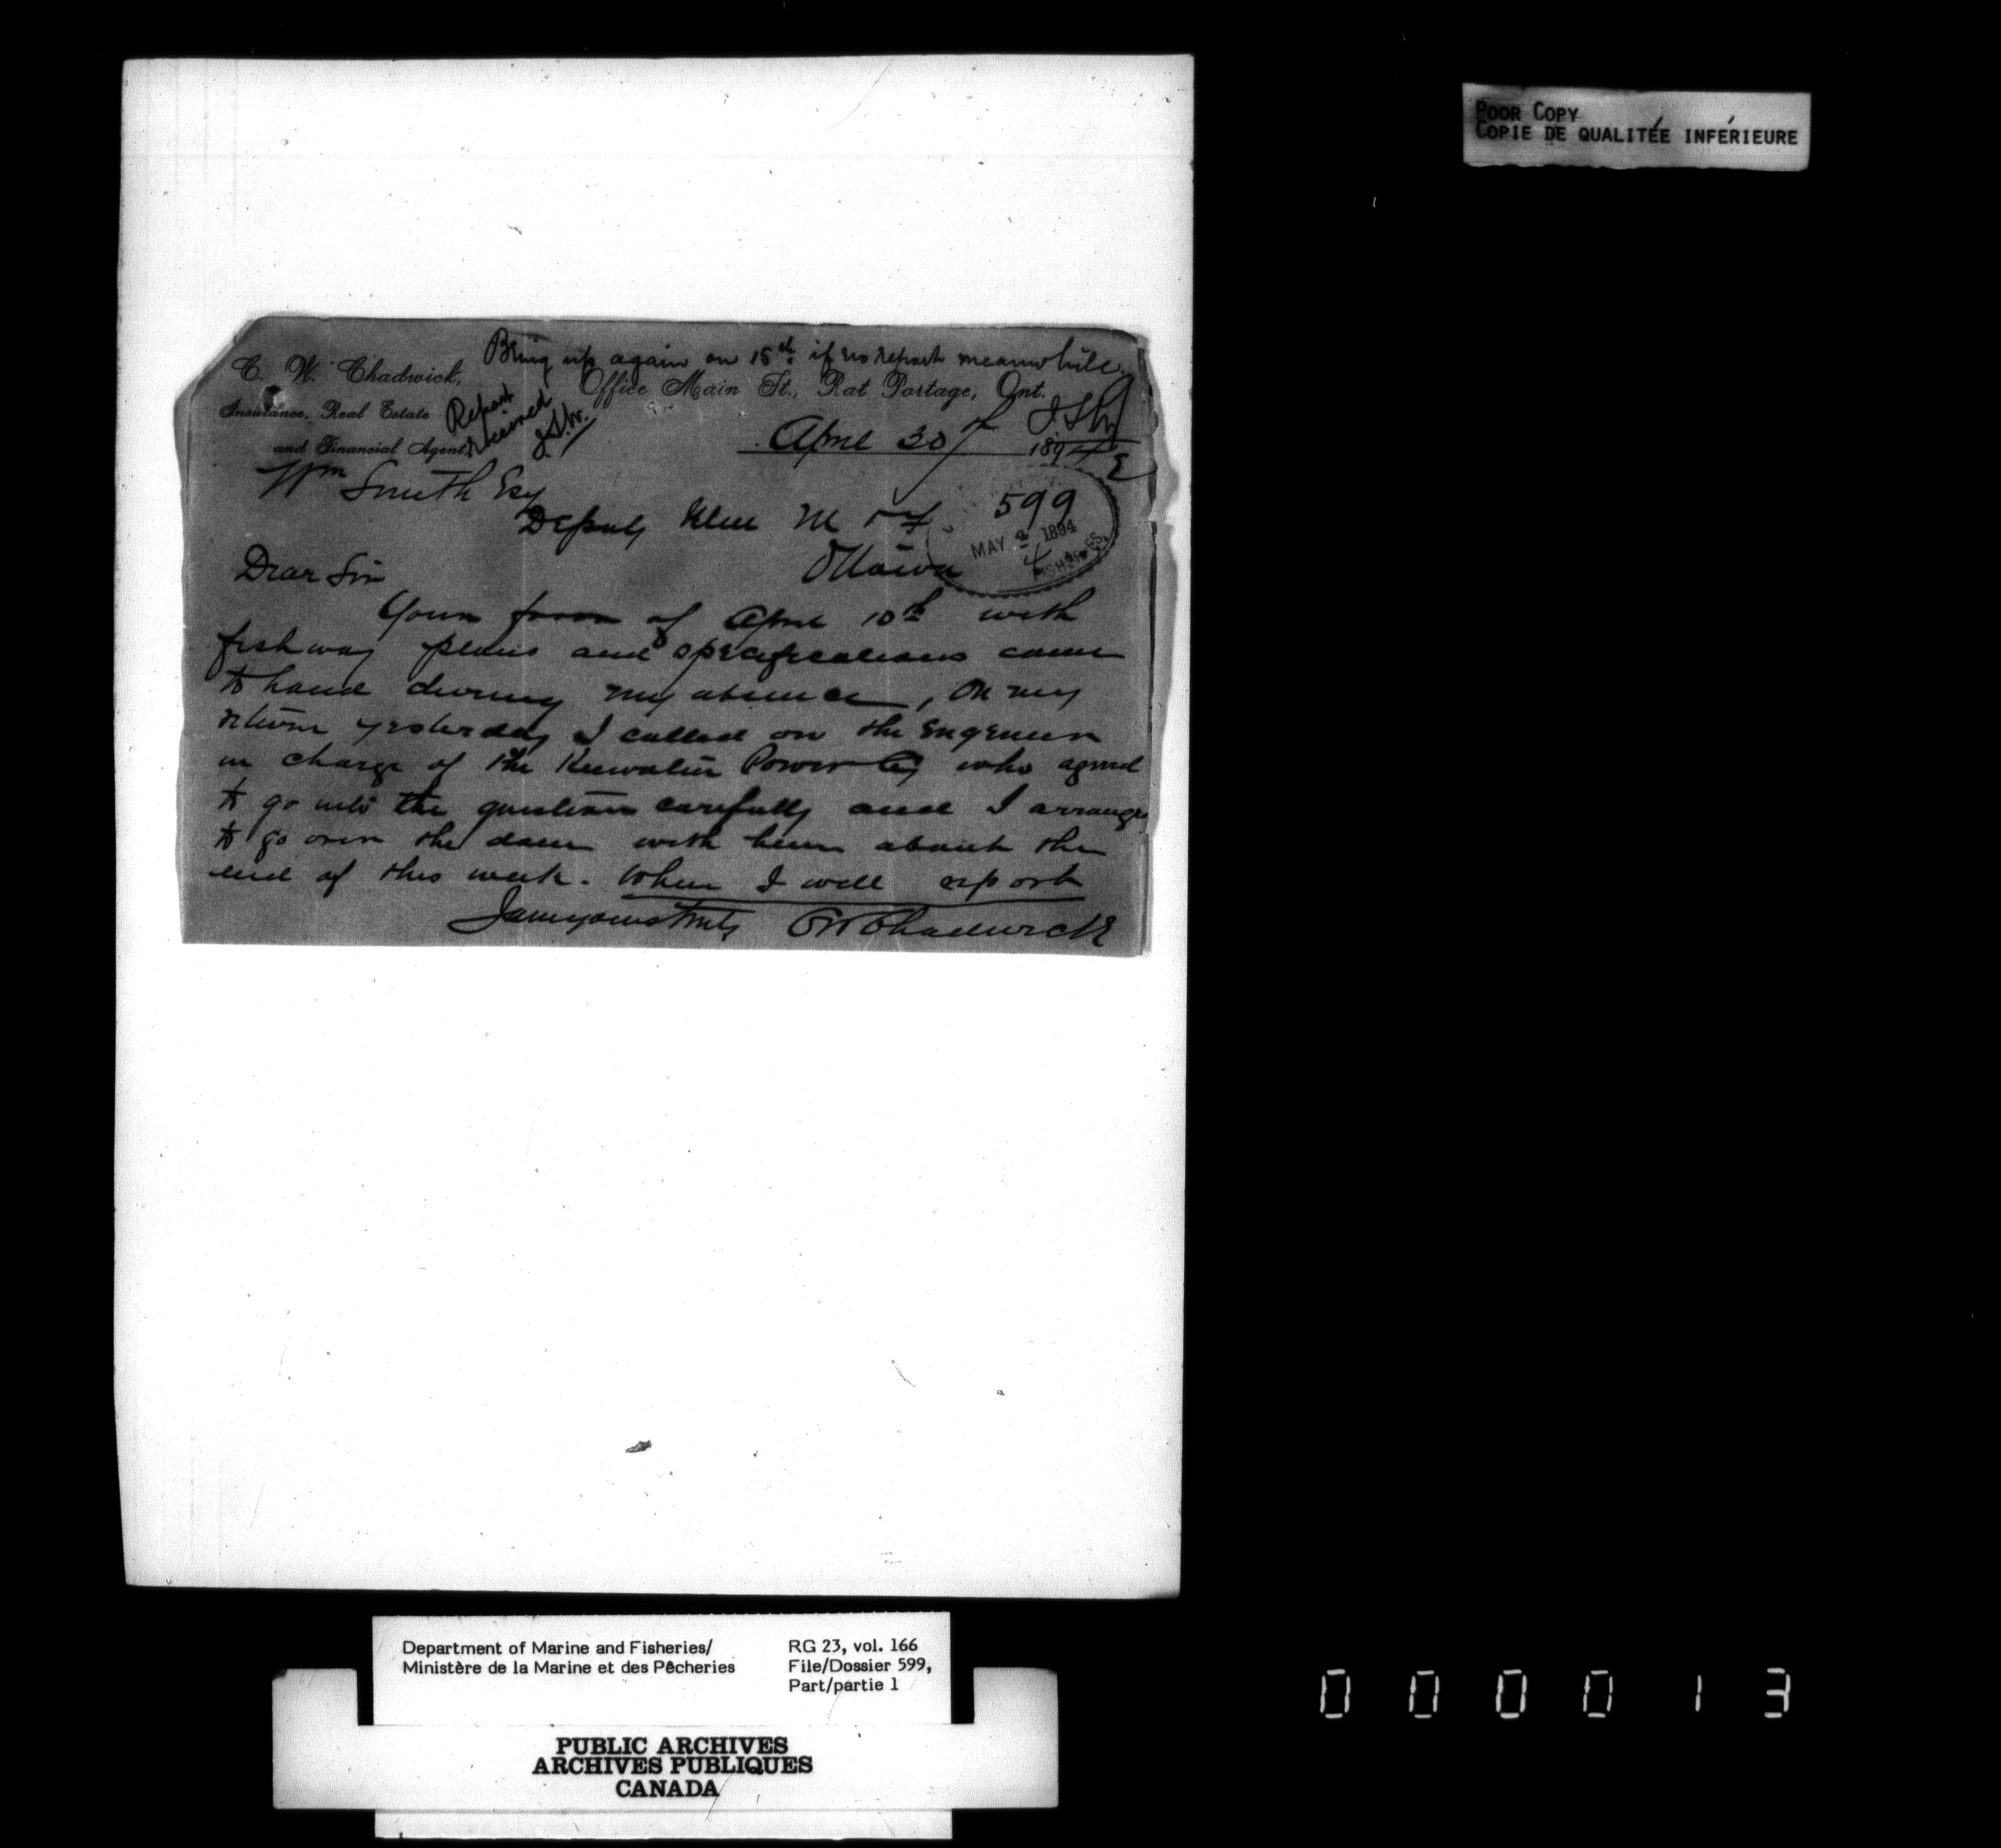 POOR COPY
COPIE DE QUALITÉE INFÉRIEURE
Bring up again on 15th if no report meanwhile.
J.S.W.
C. W. Chadwick,
Office Main St., Rat Portage, Ont.
Insurance, Real Estate
and Financial Agent.
Report
received
J.S.W.
April 30th 1894
Wm Smith Esq
Deputy Min M & F
Ottawa
599
MAY 4 1894
FISHERIES
Dear Sir
Your favor of April 10th with
fishway plans and specifications came
to hand during my absence, On my
return yesterday I called on the Engeneer
in charge of the Keewatin Power Co who agreed
to go into the question carefully and I arranged
to go over the dam with him about the
end of this week. When I will report
Yours truly CW Chadwick
Department of Marine and Fisheries/
Ministère de la Marine et des Pêcheries
RG 23, vol. 166
File/Dossier 599,
Part/partie 1
PUBLIC ARCHIVES
ARCHIVES PUBLIQUES
CANADA
000013